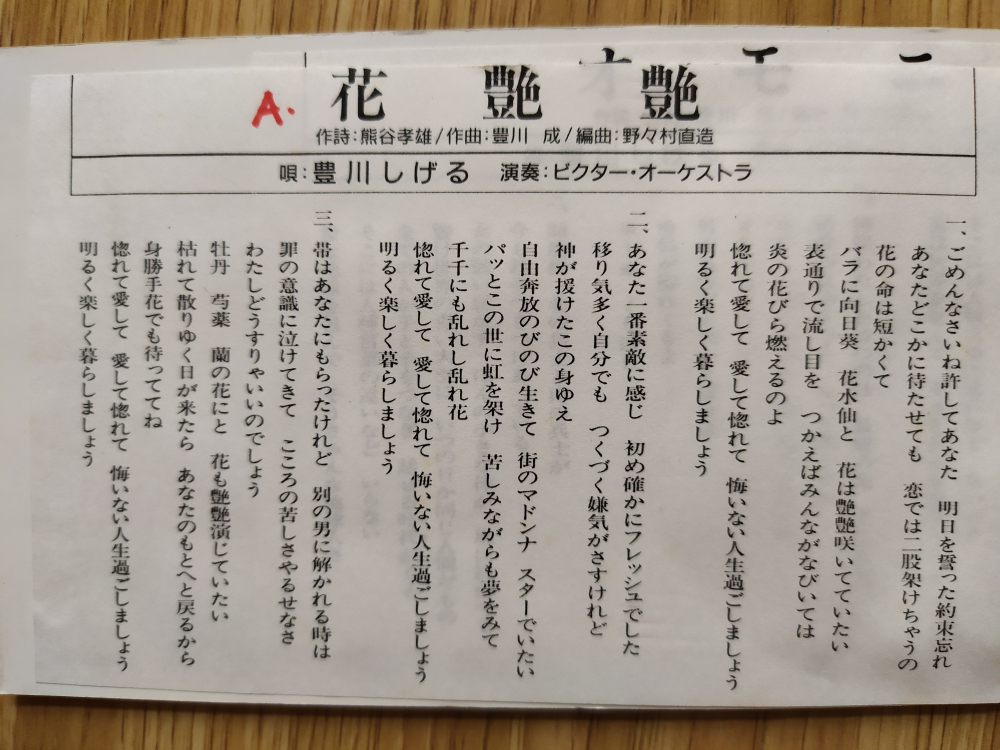 花 艶 艶
A.
作詩:熊谷孝雄/作曲:豊川 成/編曲:野々村直造
唄:豊川しげる 演奏:ビクター・オーケストラ
一、ごめんなさいね許してあなた 明日を誓った約束忘れ
あなたどこかに待たせても 恋では二股架けちゃうの
花の命は短かくて
バラに向日葵 花水仙と 花は艶艶咲いていたい
表通りで流し目を つかえばみんながなびいては
炎の花びら燃えるのよ
惚れて愛して 愛して惚れて 悔いない人生過ごしましょう
明るく楽しく暮らしましょう
二、あなた一番素敵に感じ 初め確かにフレッシュでした
移り気多く自分でも つくづく嫌気がさすけれど
神が授けたこの身ゆえ
自由奔放のびのび生きて 街のマドンナ スターでいたい
パッとこの世に虹を架け 苦しみながらも夢をみて
千千にも乱れし乱れ花
惚れて愛して 愛して惚れて 悔いない人生過ごしましょう
明るく楽しく暮らしましょう
三、帯はあなたにもらったけれど 別の男に解かれる時は
罪の意識に泣けてきて こころの苦しさやるせなさ
わたしどうすりゃいいのでしょう
牡丹 芍薬 蘭の花にと 花も艶艶演じていたい
枯れて散りゆく日が来たら あなたのもとへと戻るから
身勝手花でも待っててね
惚れて愛して 愛して惚れて 悔いない人生過ごしましょう
明るく楽しく暮らしましょう